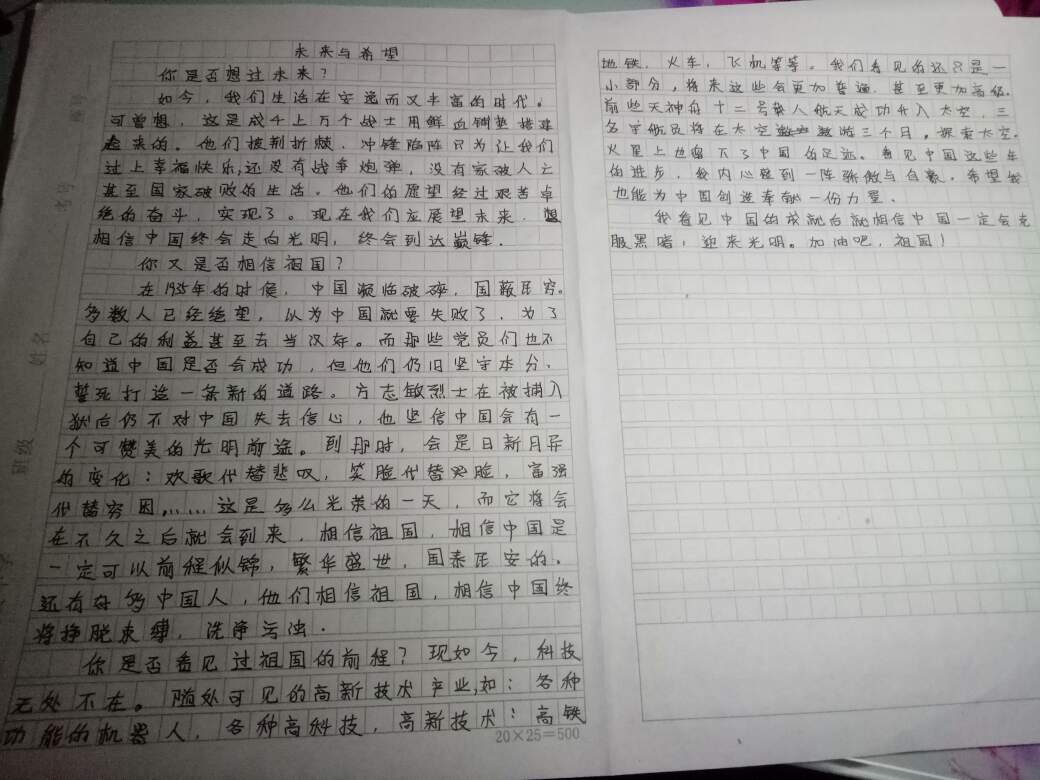 未来与希望
你是否想过未来？
如今，我们生活在安逸而又丰富的时代。
可曾想，这是成千上万个战士用鲜血铺垫搭建
起来的。他们披荆折棘，冲锋陷阵只为让我们
过上幸福快乐，还没有战争炮弹，没有家破人亡
甚至国家破败的生活。他们的愿望经过艰苦卓
绝的奋斗，实现了。现在我们应展望未来，
相信中国终会走向光明，终会到达巅锋．
你又是否相信祖国？
在1935年的时候，中国濒临破碎，国蔽民穷。
多数人已经绝望，以为中国就要失败了，为了
自己的利益甚至去当汉奸。而那些党员们也不
知道中国是否会成功，但他们仍旧坚守本分、
誓死打造一条新的道路。方志敏烈士在被捕入
狱后仍不对中国失去信心，他坚信中国会有一
个可赞美的光明前途。到那时，会是日新月异
的变化：欢歌代替悲叹，笑脸代替哭脸，富强
代替穷困……这是多么光荣的一天，而它将会
在不久之后就会到来，相信祖国，相信中国是
一定可以前程似锦，繁华盛世，国泰民安的．
还有好多中国人，他们相信祖国，相信中国终
将挣脱束缚，洗净污浊．
你是否看见过祖国的前程？现如今，科技
无处不在。随处可见的高新技术产业，如：各种
功能的机器人，各种高科技，高新技术：高铁
20×25=500
地铁，火车，飞机等等。我们看见的还只是一
小部分，将来这些会更加普遍，甚至更加高级．
前些天神舟十二号载人航天成功升入太空，三
名宇航员将在太空遨游三个月，探索太空．
火星上也留下了中国的足迹。看见中国这些年
的进步，我内心感到一阵骄傲与自豪，希望我
也能为中国创造奉献一份力量．
我看见中国的成就后就相信中国一定会克
服黑暗，迎来光明。加油吧，祖国！
班级
姓名
考号